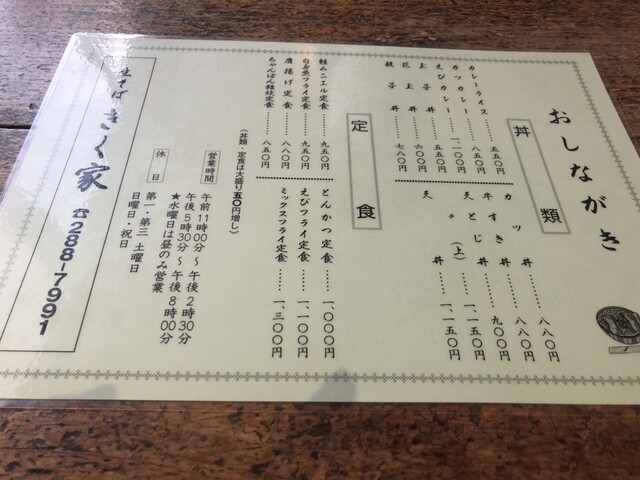 おしながき
丼類
カレーライス……五五〇円
カツカレー……八五〇円
えびカレー……一、一〇〇円
玉子丼……五五〇円
花玉丼……六〇〇円
親子丼……七八〇円
カツ丼……八八〇円
牛すき丼……八八〇円
天とじ丼……九〇〇円
天〃(上)……一、一五〇円
天丼……一、一五〇円
定食
鮭ムニエル定食……九五〇円
白身魚フライ定食……九五〇円
唐揚げ定食……八八〇円
ちゃんぽん雑炊定食……八五〇円
とんかつ定食……一、〇〇〇円
えびフライ定食……一、一〇〇円
ミックスフライ定食……一、三〇〇円
(丼類・定食は大盛り五〇円増し)
営業時間
午前11時00分〜午後2時30分
午後5時30分〜午後8時00分
★水曜日は昼のみ営業
休日
第一・第三土曜日
日曜日・祝日
生そば きく家 ☎288-7991